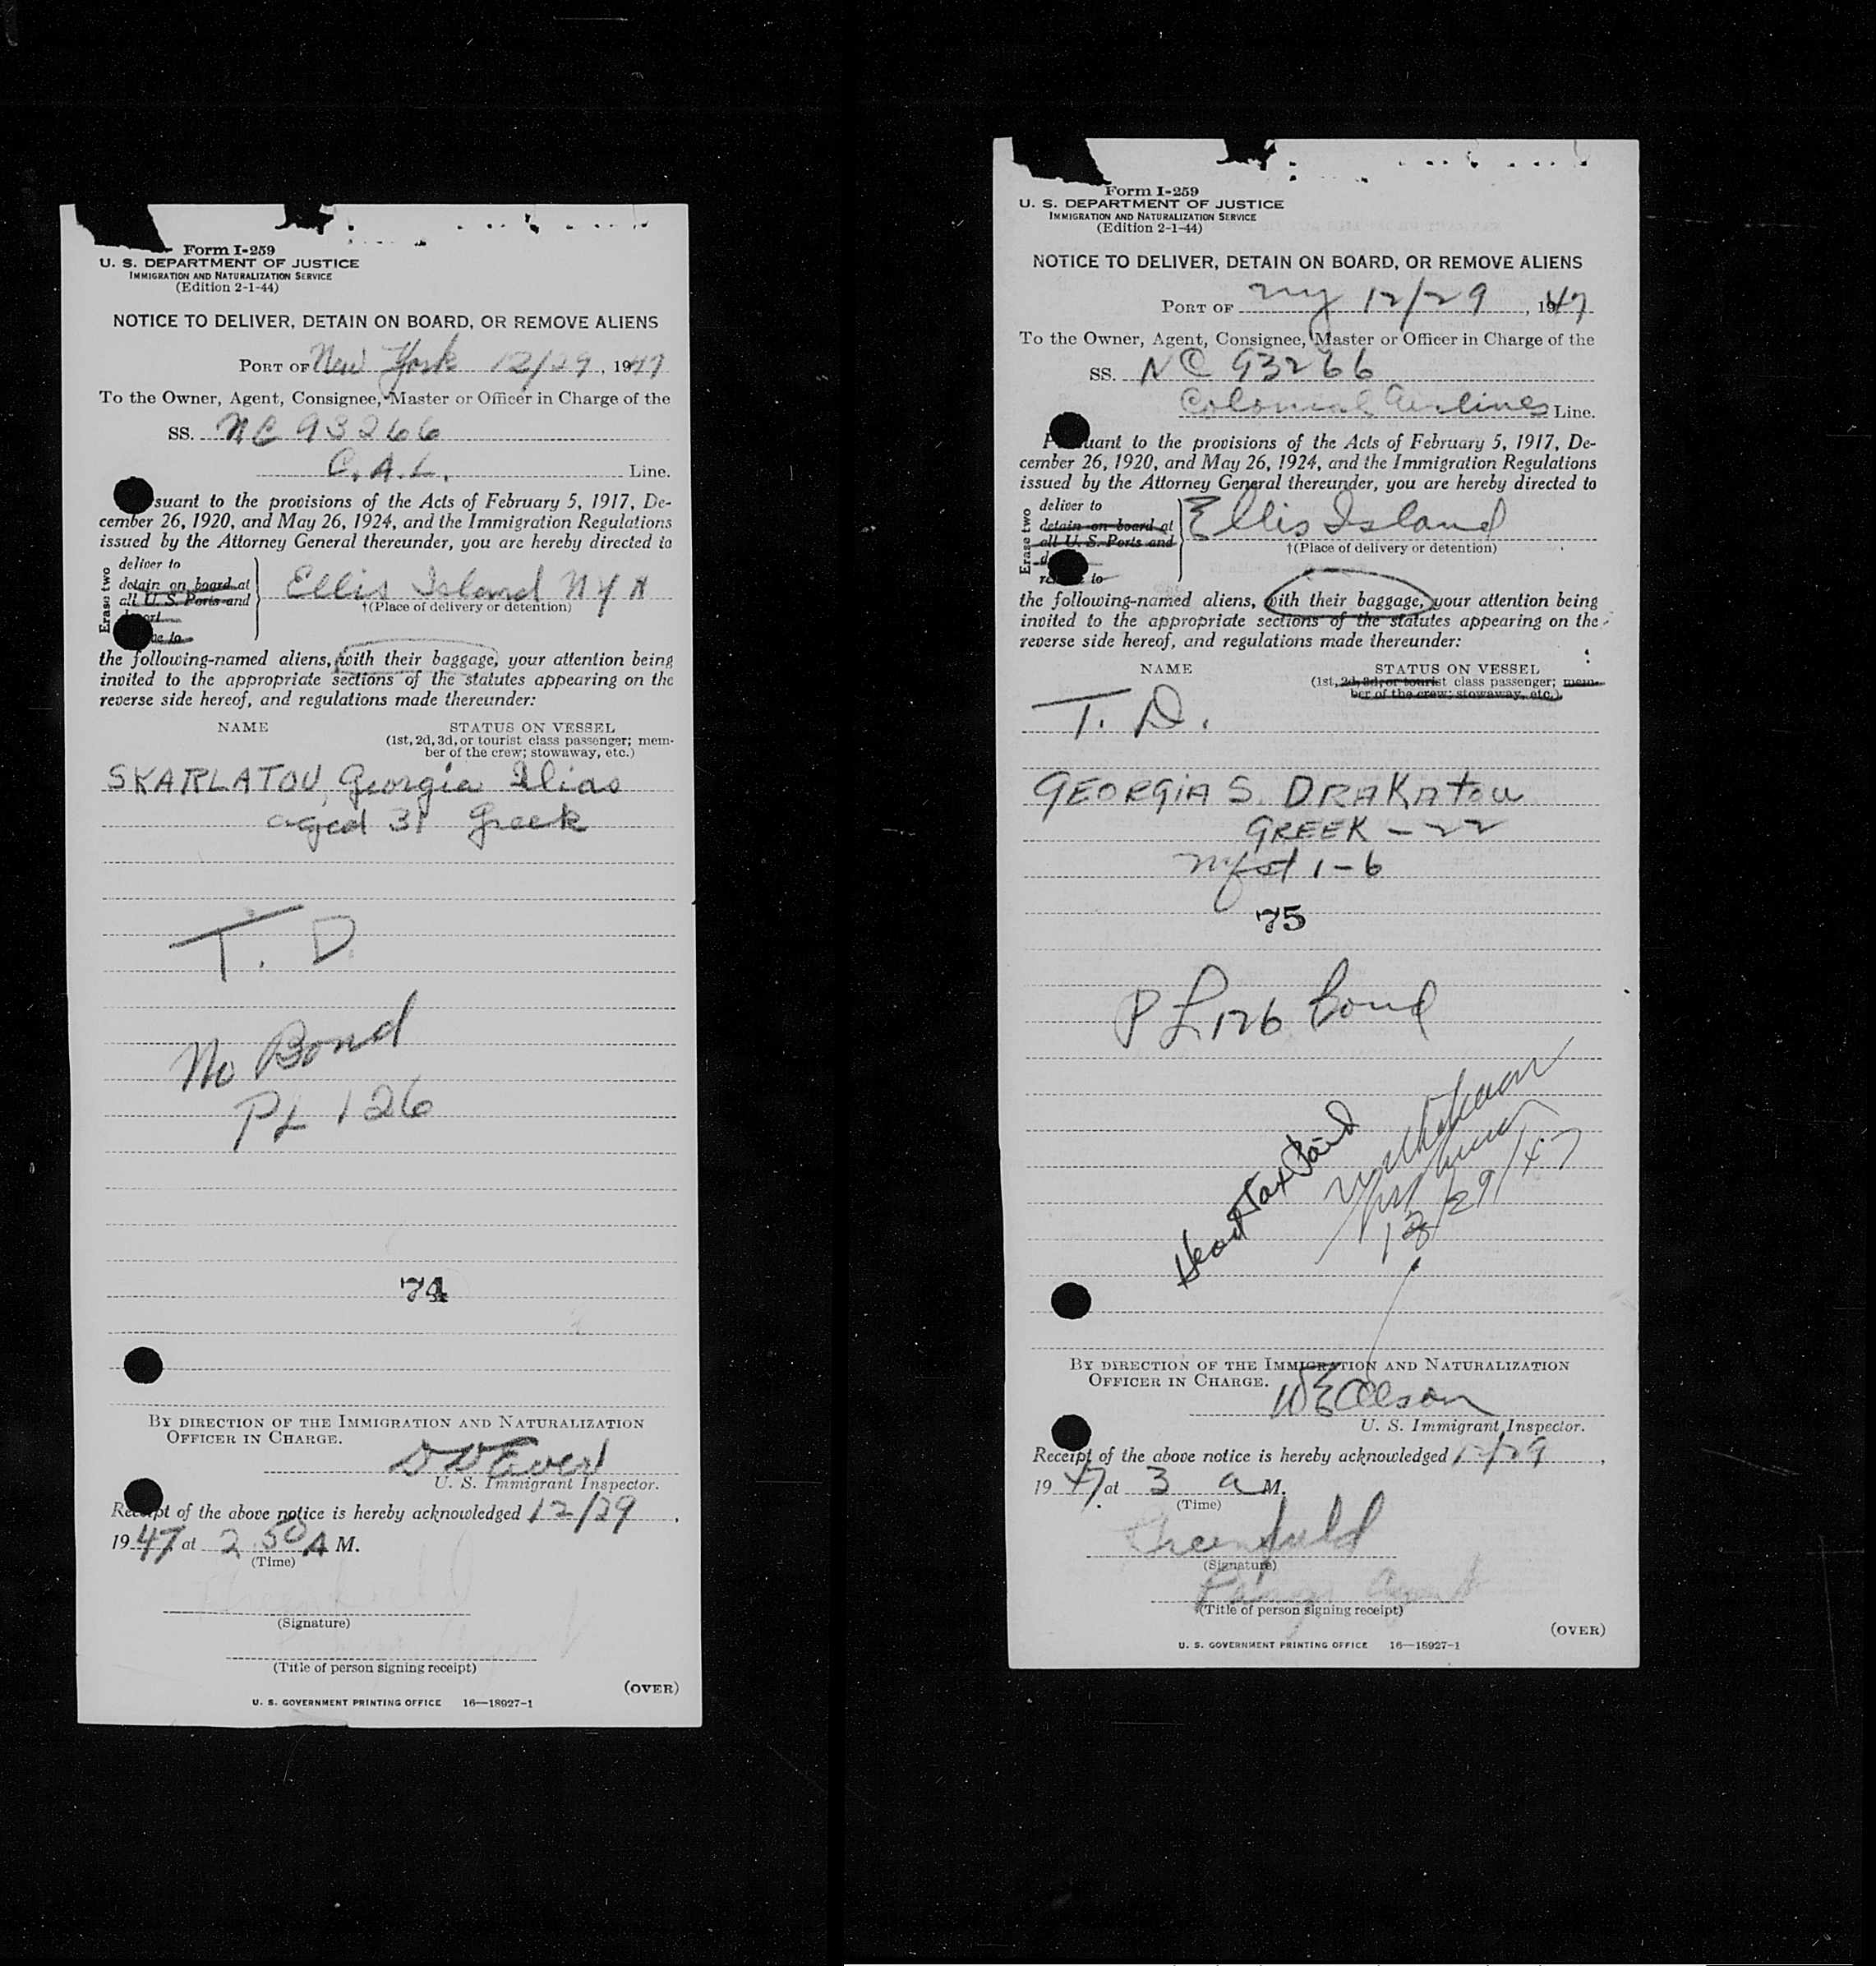 Form I-259
U. S. DEPARTMENT OF JUSTICE
IMMIGRATION AND NATURALIZATION SERVICE
(Edition 2-1-44)
NOTICE TO DELIVER, DETAIN ON BOARD, OR REMOVE ALIENS
PORT OF New York 12/29, 1947
To the Owner, Agent, Consignee, Master or Officer in Charge of the
SS. NC 93266
C.A.L. Line.
suant to the provisions of the Acts of February 5, 1917, De-
cember 26, 1920, and May 26, 1924, and the Immigration Regulations
issued by the Attorney General thereunder, you are hereby directed to
Erase two
deliver to
detain on board at
all U. S. Ports and
port
ve to
Ellis Island N Y H
†(Place of delivery or detention)
the following-named aliens, with their baggage, your attention being
invited to the appropriate sections of the statutes appearing on the
reverse side hereof, and regulations made thereunder:
NAME STATUS ON VESSEL
(1st, 2d, 3d, or tourist class passenger; mem-
ber of the crew; stowaway, etc.)
SKARLATOU, Georgia Ilias
aged 31 Greek
T. D
No Bond
PL 126
74
BY DIRECTION OF THE IMMIGRATION AND NATURALIZATION
OFFICER IN CHARGE.
U. S. Immigrant Inspector.
Receipt of the above notice is hereby acknowledged 12/29,
1947 at 2 50 A M.
(Time)
(Signature)
(Title of person signing receipt)
(OVER)
U. S. GOVERNMENT PRINTING OFFICE 16—18927-1
Form I-259
U. S. DEPARTMENT OF JUSTICE
IMMIGRATION AND NATURALIZATION SERVICE
(Edition 2-1-44)
NOTICE TO DELIVER, DETAIN ON BOARD, OR REMOVE ALIENS
PORT OF NY 12/29, 1947
To the Owner, Agent, Consignee, Master or Officer in Charge of the
SS. NC 93266
Colonial Airlines Line.
P uant to the provisions of the Acts of February 5, 1917, De-
cember 26, 1920, and May 26, 1924, and the Immigration Regulations
issued by the Attorney General thereunder, you are hereby directed to
Erase two
deliver to
detain on board at
all U. S. Ports and
d
re to
Ellis Island
†(Place of delivery or detention)
the following-named aliens, with their baggage, your attention being
invited to the appropriate sections of the statutes appearing on the
reverse side hereof, and regulations made thereunder:
NAME STATUS ON VESSEL
(1st, 2d, 3d, or tourist class passenger; mem-
ber of the crew; stowaway, etc.)
T. D.
GEORGIA S. DRAKATOU
GREEK - 22
mfst 1-6
75
P L 126 bond
Head Tax Paid
12/29/47
BY DIRECTION OF THE IMMIGRATION AND NATURALIZATION
OFFICER IN CHARGE.
U. S. Immigrant Inspector.
Receipt of the above notice is hereby acknowledged 12/29,
1947 at 3 a M.
(Time)
(Signature)
(Title of person signing receipt)
(OVER)
U. S. GOVERNMENT PRINTING OFFICE 16—18927-1